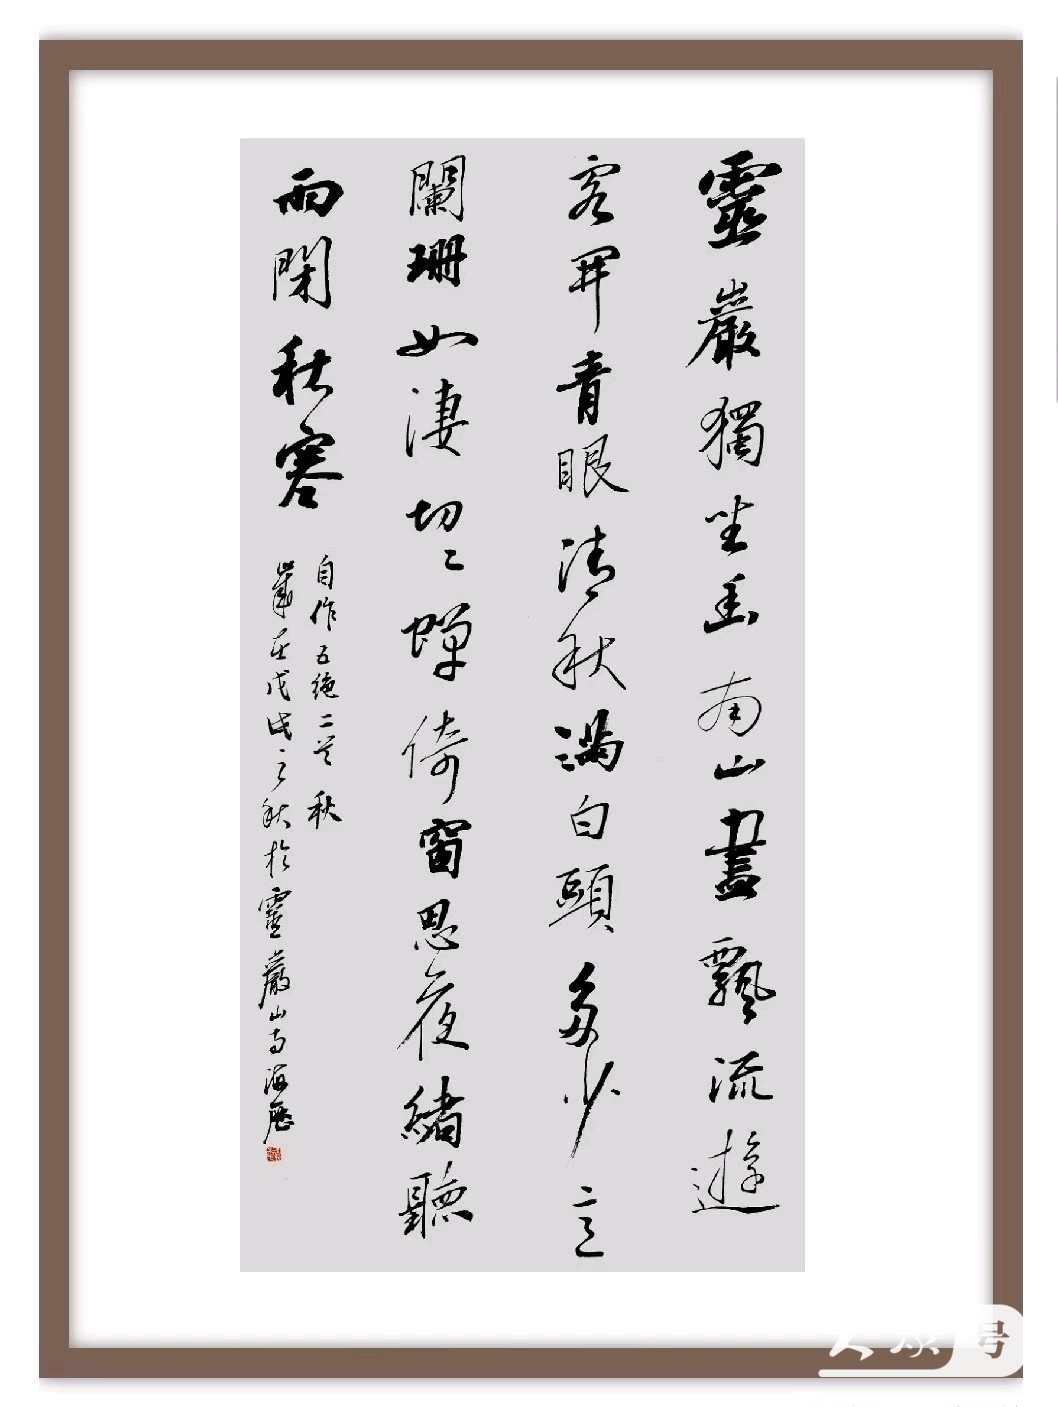 靈巖獨坐南山盡飄流遊
客開青眼清秋滿白頭多少言
闌珊如淒切々蟬倚窗思夜緒聽
雨閑秋寒
自作五絕二首 秋
歲在戊戌之秋於靈巖山寺海
人众号